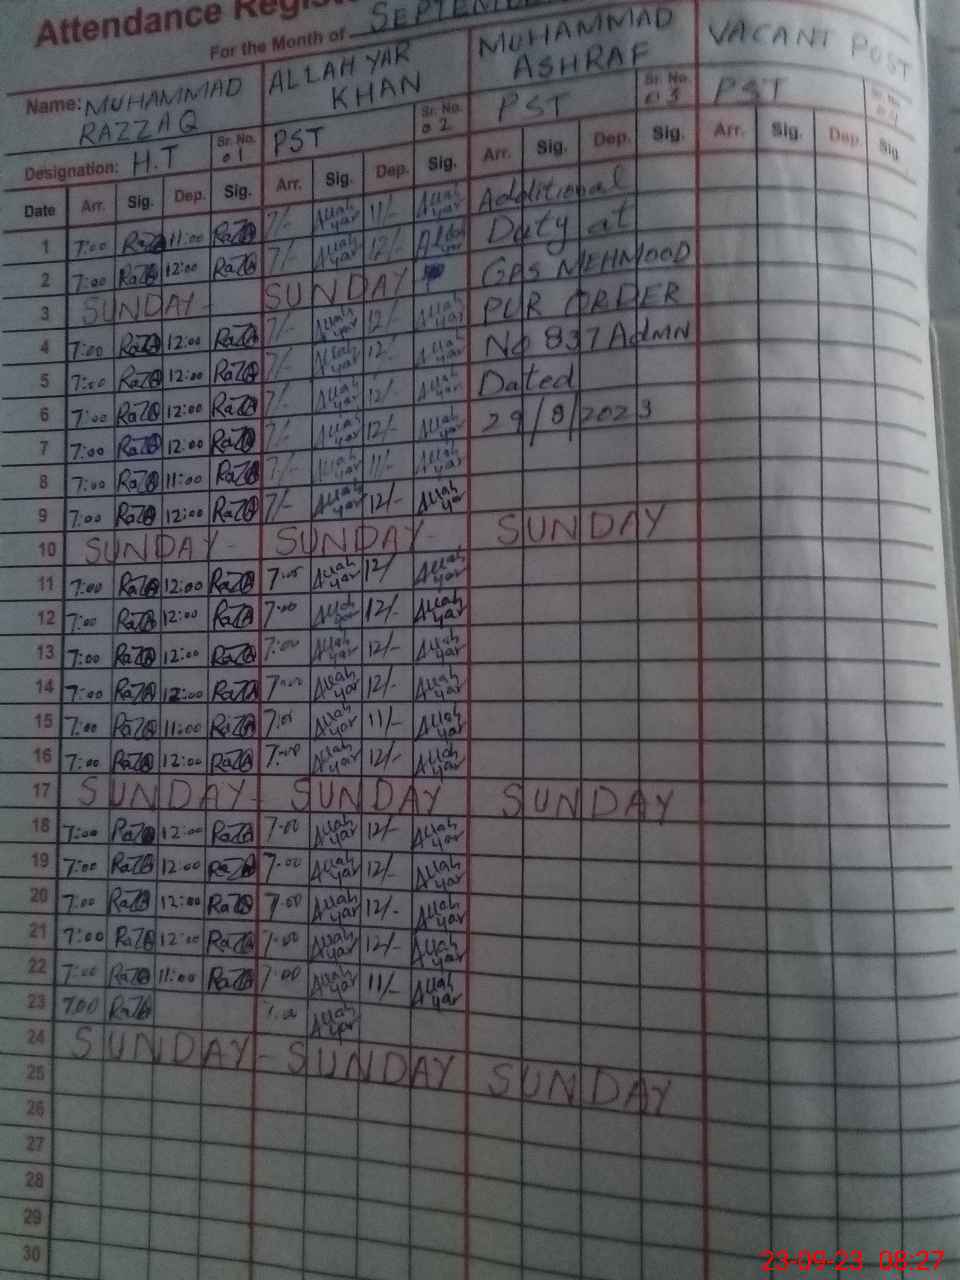 Attendance Regist
For the Month of SEPTEMBE
Name: MUHAMMAD RAZZAQ ALLAH YAR KHAN MUHAMMAD ASHRAF VACANT POST
Designation: H.T Sr. No. 01 PST Sr. No. 02 PST Sr. No. 03 PST Sr. No.
Date Arr. Sig. Dep. Sig. Arr. Sig. Dep. Sig. Arr. Sig. Dep. Sig. Arr. Sig. Dep. Sig.
1 7:00 11:00 7/- Allah yar 11/- Allah yar Additional
2 7:00 12:00 7/- Allah yar 12/- Duty at
3 SUNDAY SUNDAY GPS MEHMOOD
4 7:00 12:00 7/- Allah yar 12/- Allah yar PUR ORDER
5 7:00 12:00 7/- Allah yar 12/- Allah yar No 837 Admn
6 7:00 12:00 7/- Allah yar 12/- Allah yar Dated
7 7:00 12:00 7/- Allah yar 12/- Allah yar 29/8/2023
8 7:00 11:00 7/- Allah yar 11/- Allah yar
9 7:00 12:00 7/- Allah yar 12/- Allah yar
10 SUNDAY - SUNDAY - SUNDAY
11 7:00 12:00 7:00 Allah yar 12/ Allah yar
12 7:00 12:00 7:00 Allah yar 12/- Allah yar
13 7:00 12:00 7:00 Allah yar 12/- Allah yar
14 7:00 12:00 7:00 Allah yar 12/- Allah yar
15 7:00 11:00 7:00 Allah yar 11/- Allah yar
16 7:00 12:00 7:00 Allah yar 12/- Allah yar
17 SUNDAY - SUNDAY SUNDAY
18 7:00 12:00 7:00 Allah yar 12/- Allah yar
19 7:00 12:00 7:00 Allah yar 12/- Allah yar
20 7:00 12:00 7:00 Allah yar 12/- Allah yar
21 7:00 12:00 7:00 Allah yar 12/- Allah yar
22 7:00 11:00 7:00 Allah yar 11/- Allah yar
23 7:00 7:00 Allah yar
24 SUNDAY - SUNDAY SUNDAY
25
26
27
28
29
30
23-09-23 08:27